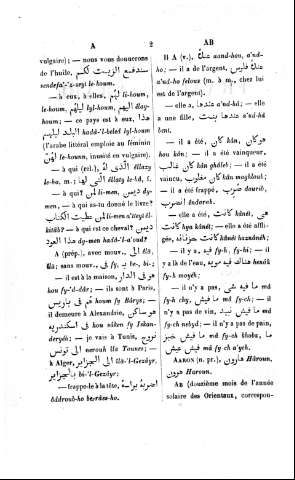 A
2
AB
vulgaire); — nous vous donnerons
de l'huile, سندفع الزيت لكم
sendefa'-z-zeyt le-koum.
— à eux, à elles, لهم li-houm,
le-houm, لهم lyl-houm, اليهم ilay-
houm; — ce pays est à eux, هذا
البلد ليلهم hadâ-'l-beled lyl-houm
(l'arabe littéral emploie au féminin
لهن lehounn, inusité en vulgaire).
— à qui (rel.), الذى له ellazy
le-ho, m.; التى لها ellaty le-hâ, f.
— à qui (interr.), لمن li-men,
ديمن dy-
men, — à qui as-tu donné le livre?
لمن اعطيت الكتاب li-men a'tteyt êl-
kitâb? — à qui est ce cheval? ديمن
هذا العود dy-men hadâ-'l-a'oud?
A (prép.), avec mouv., الى ilâ,
êlâ; sans mouv., فى fy, بـ be-, bi-;
— il est à la maison هو فى الدار
hou fy-'d-dâr; — ils sont à Paris,
هم فى باريس houm fy Bârys; —
il demeure à Alexandrie, هو ساكن
فى اسكندريه hou sâken fy Iskan-
deryéh; — je vais à Tunis, نروح
الى تونس nerouh ila Tounes; —
à Alger, الى الجزاير ilâ-'l-Gezâyr,
بالجزاير bi-'l-Gezâyr;
— frappe-le à la tête, اضربه براسه
ôddroub-ho be-râss-ho.
II A (v.), عندك a'nd-hou, a'nd-
ho; — il a de l'argent, عنده فلوس
a'nd-ho felous (m. à m., chez lui
est de l'argent).
— elle a, عندها a'nd-hâ; — elle
a une fille, عندها بنت a'nd-hâ
bent.
— il a été, كان kân, هو كان
hou kân; — il a été vainqueur,
كان غالب kân ghâleb; — il a été
vaincu, كان مغلوب kân maghloub;
— il a été frappé, ضورب dourib,
انضرب êndareb.
— elle a été, كانت kânet, هى كانت
hya kânét; — elle a été affli-
gée, كانت حزنانه kânét haznânéh;
— il y a, فيه fy-h, fy-hi; — il
y a là de l'eau, هناك فيه مويه henâk
fy-h moyéh.
— il n'y a pas, ما فيه شى mâ
fy-h chy, ما فيش mâ fy-ch; — il
n'y a pas de vin, ما فيش نبيد mâ
fy-ch nebyd; — il n'y a pas de pain,
ما فيش خبز mâ fy-ch khobz,
ما فيش عيش mâ fy-ch a'ych.
AARON (n. pr.), هارون Hâroun,
هرون Haroun.
AB (douzième mois de l'année
solaire des Orientaux, correspon-